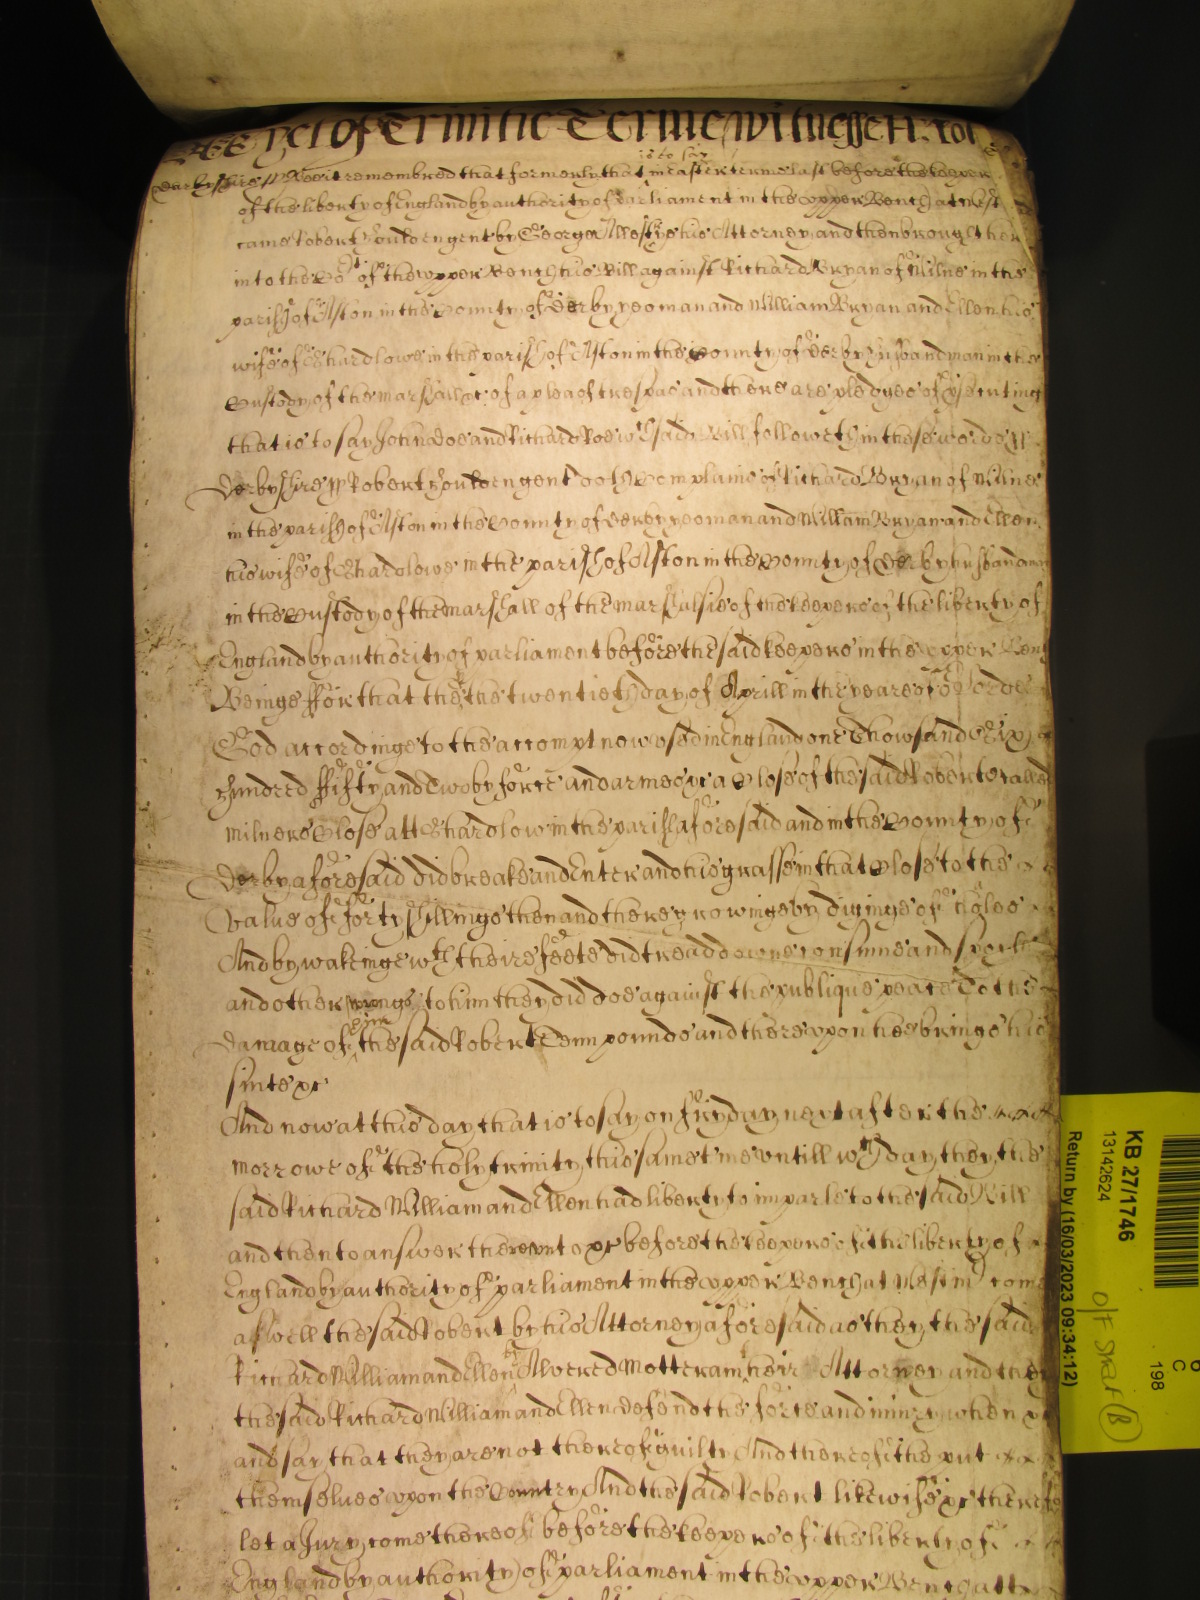 Yet of Trinitie Terme witnesseth. Rol
is to say
Derbyshire ss Bee it remembred that formerly that in Easter terme last before the keepers
of the liberty of England by authority of Parliament in the upper Bench at West
came Robert gent by George his Attorney and then brought here
into the Cort of the upper Bench his Bill against Richard Bryan of Milne in the
parish of Aston in the County of Derby yeoman and William Bryan and Ellen his
wife of Shardlowe in the parish of Aston in the County of Derby husbandman in the
Custody of the marshall &c of a plea of trespas and there are pledges of psecuting
that is to say John Doe and Richard Roe wch said Bill followeth in these words ss
Derbyshire ss Robert gent doth Complaine of Richard Bryan of Milne
in the parish of Aston in the County of Derby yeoman and William Bryan and Ellen
his wife of Shardlowe in the parish of Aston in the County of Derby husbandman
in the Custody of the marshall of the marshalsie of the keepers of the liberty of
England by authority of parliament before the said keepers in the upper Benc
Beinge ffor that they the twentieth day of Aprill in the yeare of or Lorde
God accordinge to the accompt now used in England one Thowsand Six
hundred ffifty and Two by force and armes &c a Close of the said Roberts called
milners Close att Shardlow in the parish aforesaid and in the County of
Derby aforesaid did breake and Enter and his grasse in that Close to the
value of forty shillings then and there growinge by diginge of
And by walkinge wth theire feete did tread downe consume and spoile
and other wrongs to him they did doe against the publique peace To the
damage of him the said Robert Tenn pounds and thereupon hee brings his
suite &c
And now at this day that is to say on fryday next after the
morrowe of the holy trinity this same t'me untill wch day they the
said Richard William and Ellen had liberty to imparle to the said Bill
and then to answer thereunto &c before the keepers of the liberty of
England by authority of parliament in the upper Bench at Westm come
aswell the said Robert by his Attorney aforesaid as they the said
Richard William and Ellen by Alvered Motteram their Attorney and they
the said Richard William and Ellen defend the force and iniury when &c
and say that they are not thereof guilty And thereof the put
themselves upon the Country And the said Robert likewise &c therefore
let a Jury come thereof before the keepers of the liberty of
England by authority of parliament in the upper Bench att
KB 27/1746
13142624
Return by (16/03/2023 09:34:12)
O/F Straf B
C
198